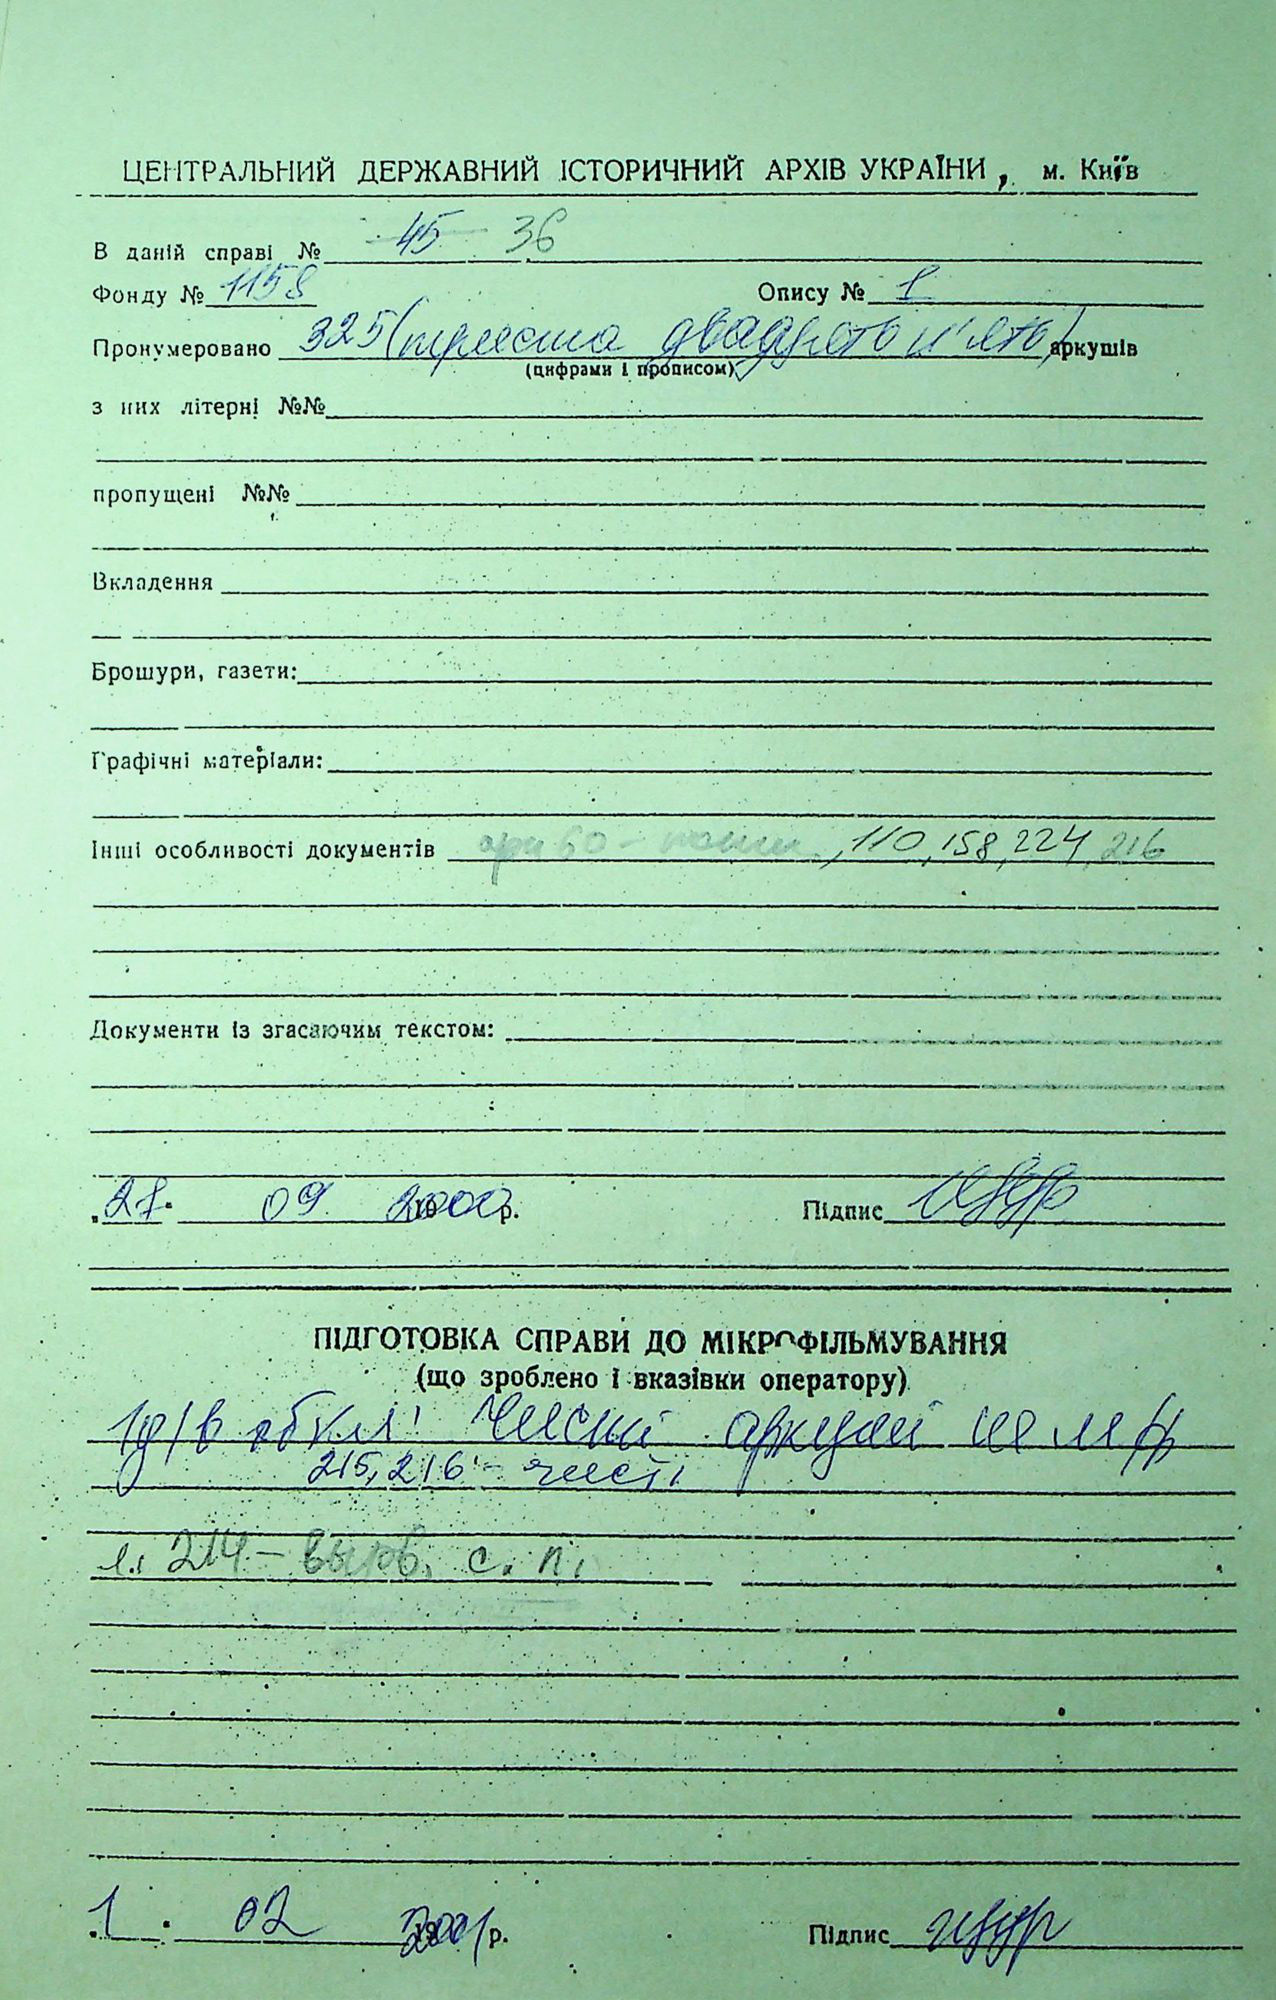 ЦЕНТРАЛЬНИЙ ДЕРЖАВНИЙ ІСТОРИЧНИЙ АРХІВ УКРАЇНИ, м. Київ
В даній справі № 45 36
Фонду № 1158 Опису № 1
Пронумеровано 325 (триста двадцять п'ять) аркушів
(цифрами і прописом)
з них літерні №№
пропущені №№
Вкладення
Брошури, газети:
Графічні матеріали:
Інші особливості документів 110, 158, 224, 216
Документи із згасаючим текстом:
09 2000 р. Підпис
ПІДГОТОВКА СПРАВИ ДО МІКРОФІЛЬМУВАННЯ
(що зроблено і вказівки оператору)
Чисті аркуші не м/ф
215, 216 - чисті
214 - с. п.
1. 02 2001 р. Підпис